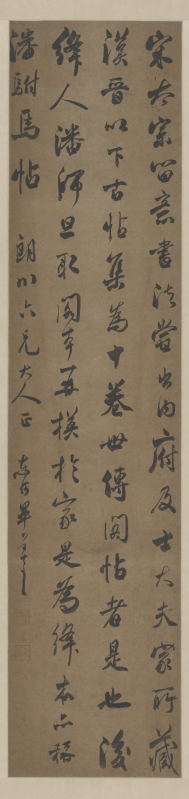 宋太宗留意書法嘗出內府及士大夫家所藏
漢晉以下古帖集為十卷世傳閣帖者是也後
絳人潘師旦取閣本再摸於家是為絳本亦稱
潘駙馬帖
朗川六兄大人正